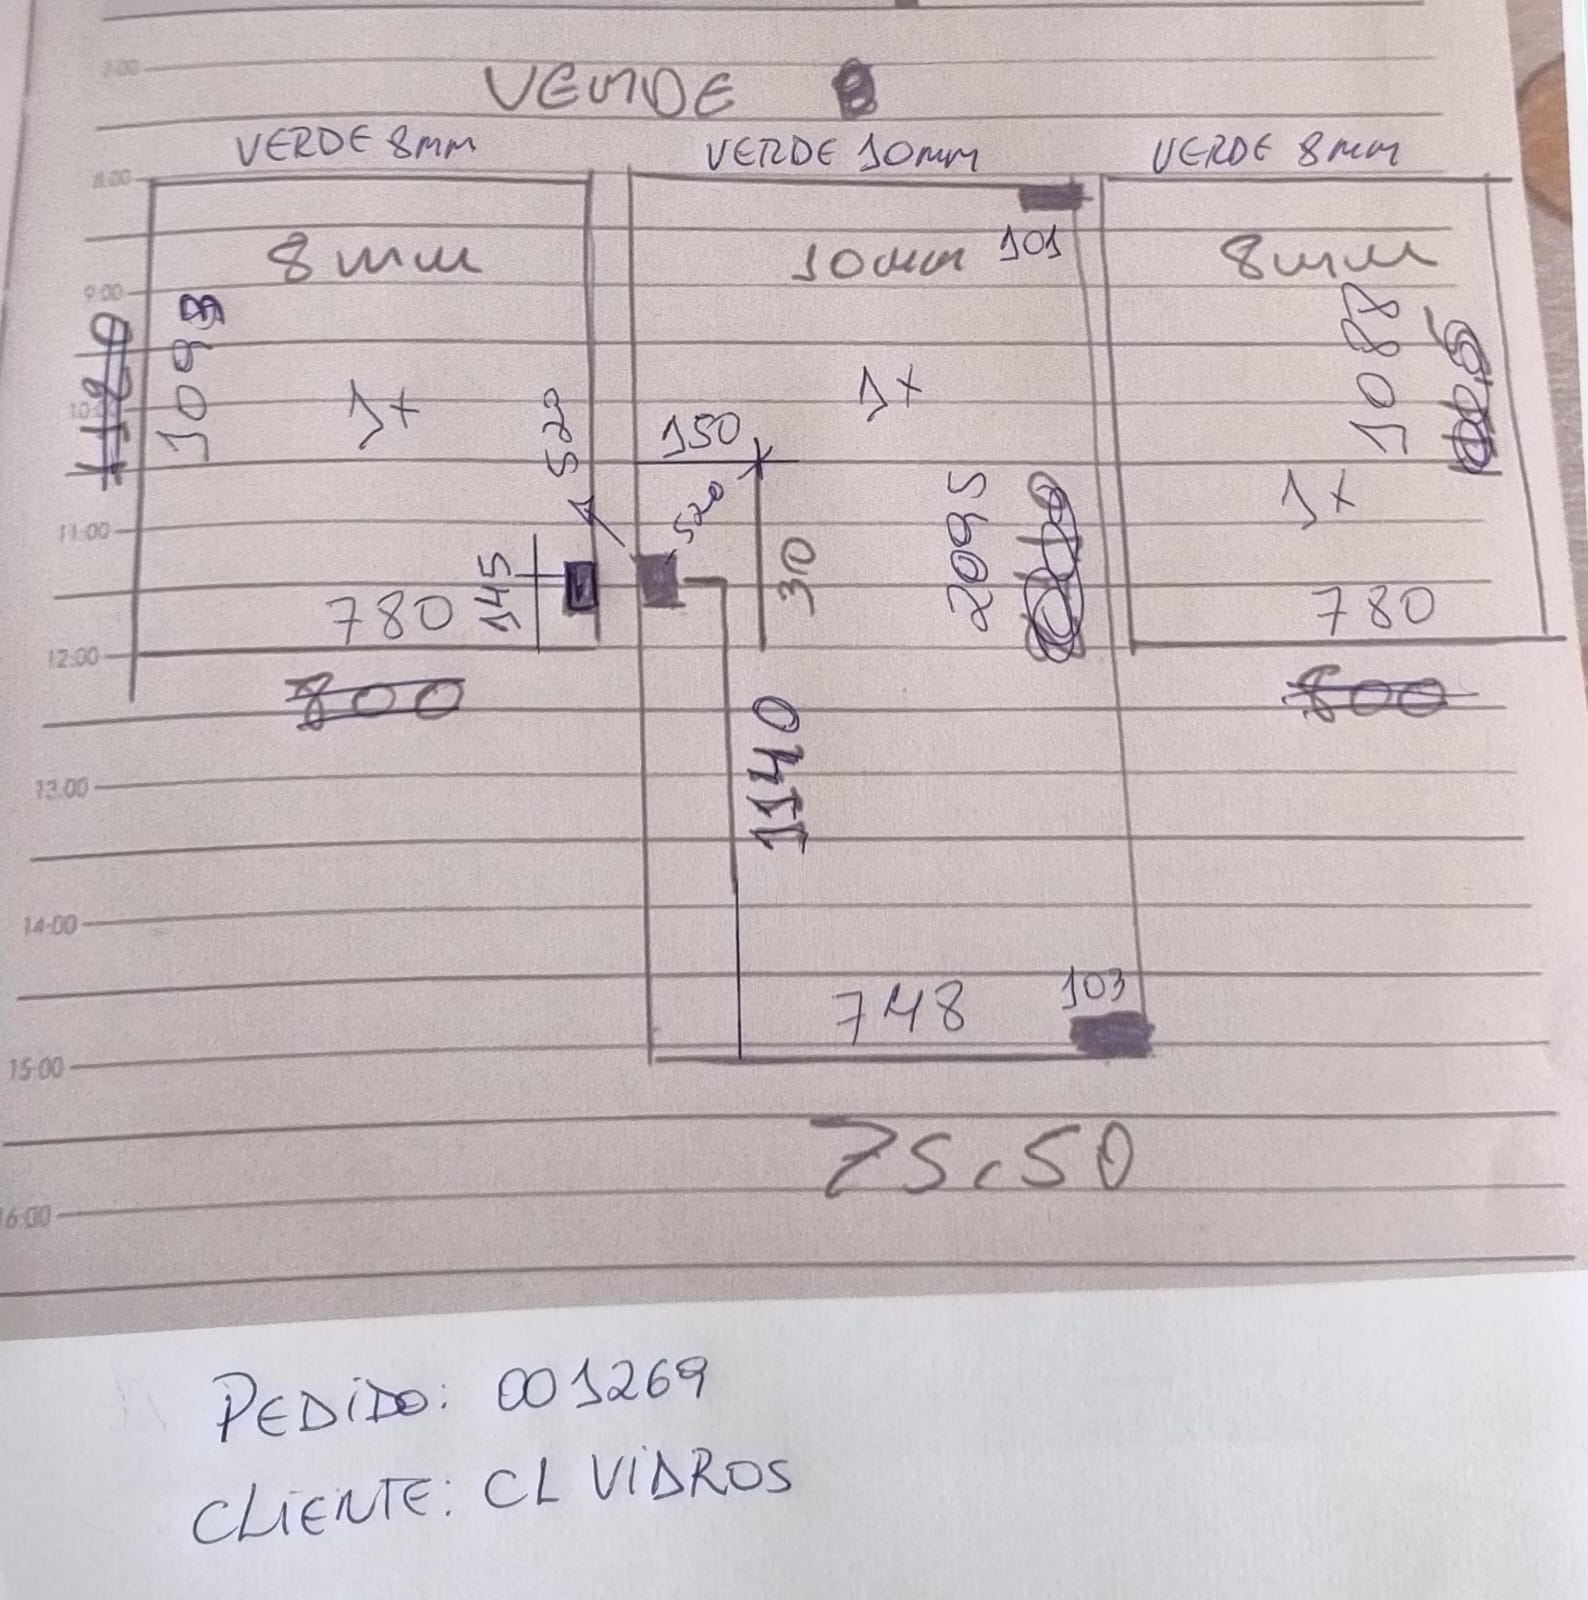 7:00
VERDE
VERDE 8mm
VERDE 10mm
VERDE 8mm
8:00
8mm
10mm
101
8mm
9:00
1120
1093
1088
10:00
1x
520
150
1x
520
2095
1x
11:00
145
30
780
780
12:00
800
800
1140
13:00
14:00
748
103
15:00
75,50
16:00
PEDiDO: 001269
CLiENTE: CL ViDROS